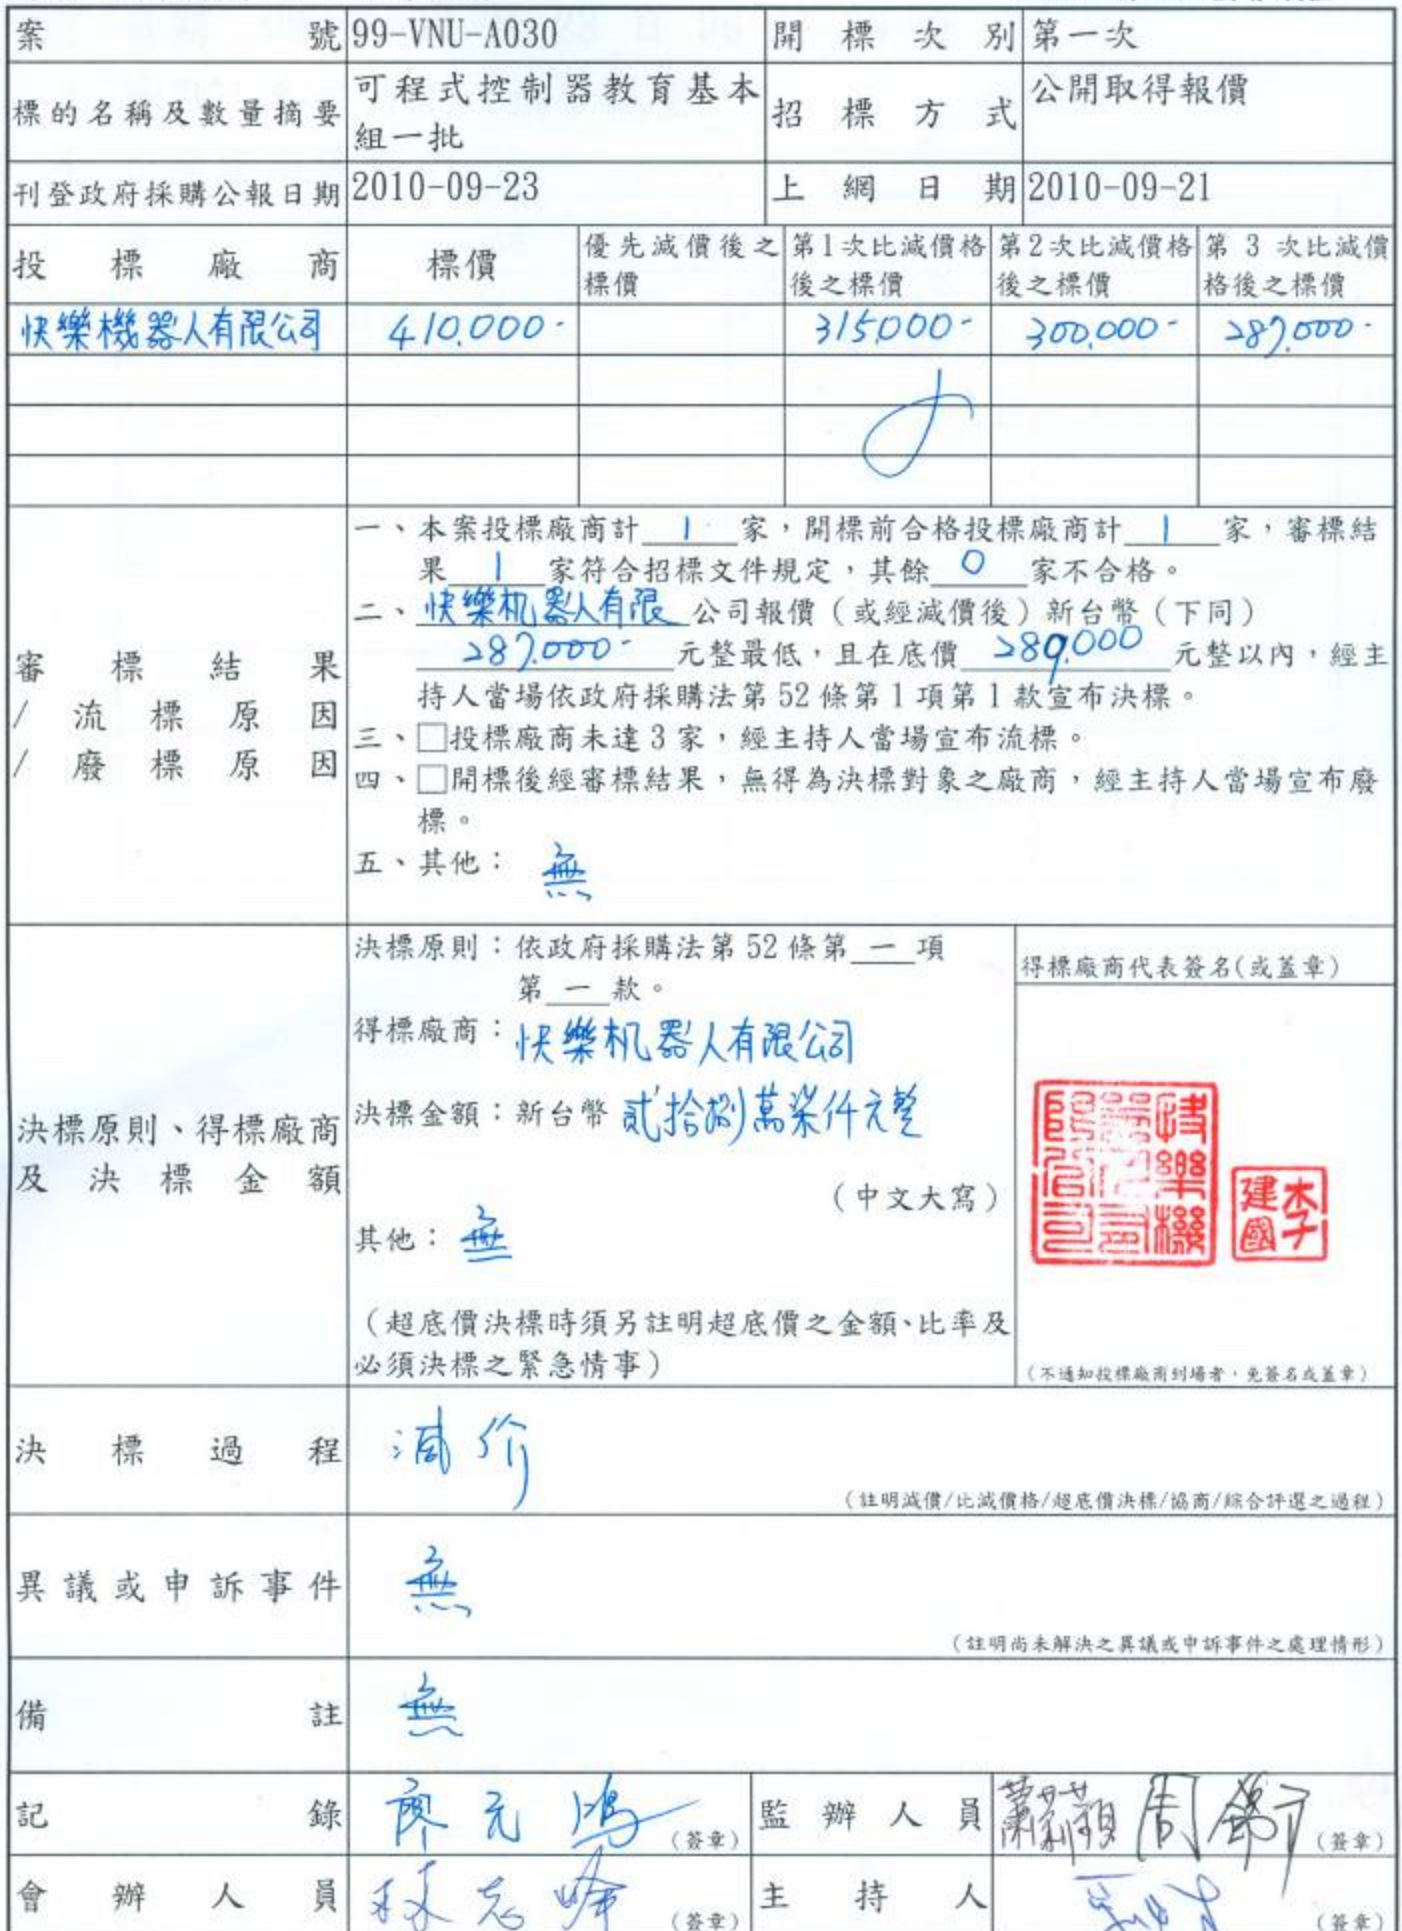 案號 99-VNU-A030 開標次別 第一次
標的名稱及數量摘要 可程式控制器教育基本
組一批 招標方式 公開取得報價
刊登政府採購公報日期 2010-09-23 上網日期 2010-09-21
投標廠商 標價 優先減價後之 第1次比減價格 第2次比減價格 第3次比減價
標價 後之標價 後之標價 格後之標價
快樂機器人有限公司 410,000- 315,000- 300,000- 287,000-
審標結果
/流標原因
/廢標原因
一、本案投標廠商計 1 家,開標前合格投標廠商計 1 家,審標結
果 1 家符合招標文件規定,其餘 0 家不合格。
二、快樂机器人有限公司報價(或經減價後)新台幣(下同)
287,000- 元整最低,且在底價 289,000 元整以內,經主
持人當場依政府採購法第52條第1項第1款宣布決標。
三、□投標廠商未達3家,經主持人當場宣布流標。
四、□開標後經審標結果,無得為決標對象之廠商,經主持人當場宣布廢
標。
五、其他:無
決標原則、得標廠商
及決標金額
決標原則:依政府採購法第52條第一項
第一款。
得標廠商:快樂机器人有限公司
決標金額:新台幣 貳拾捌萬柒仟元整
(中文大寫)
其他:無
(超底價決標時須另註明超底價之金額、比率及
必須決標之緊急情事)
得標廠商代表簽名(或蓋章)
快樂機
器人有
限公司
李
建國
(不通知投標廠商到場者,免簽名或蓋章)
決標過程 減价
(註明減價/比減價格/超底價決標/協商/綜合評選之過程)
異議或申訴事件 無
(註明尚未解決之異議或申訴事件之處理情形)
備註 無
記錄 廖元鴻 (簽章) 監辦人員 (簽章)
會辦人員 (簽章) 主持人 (簽章)